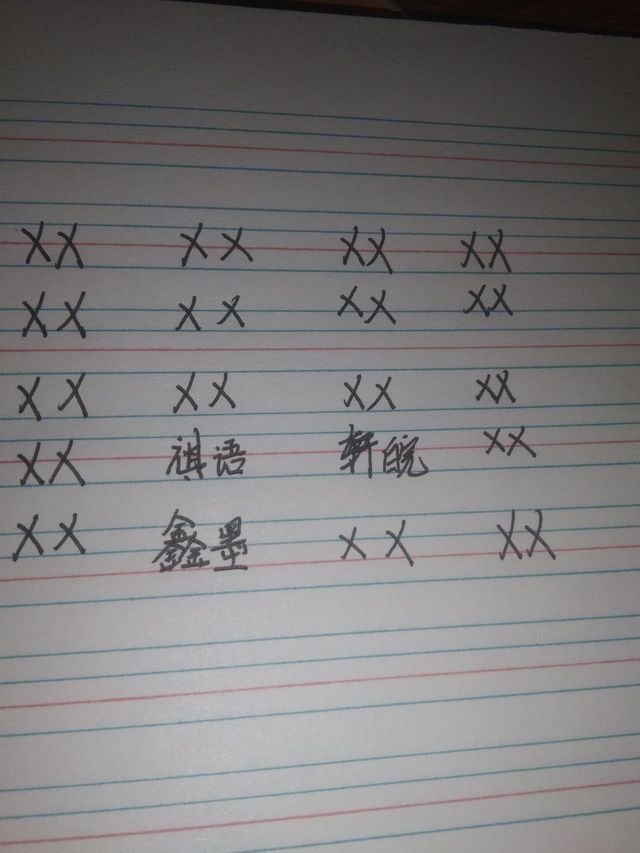 XX XX XX XX
XX XX XX XX
XX XX XX XX
XX 祺语 轩皖 XX
XX 鑫墨 XX XX